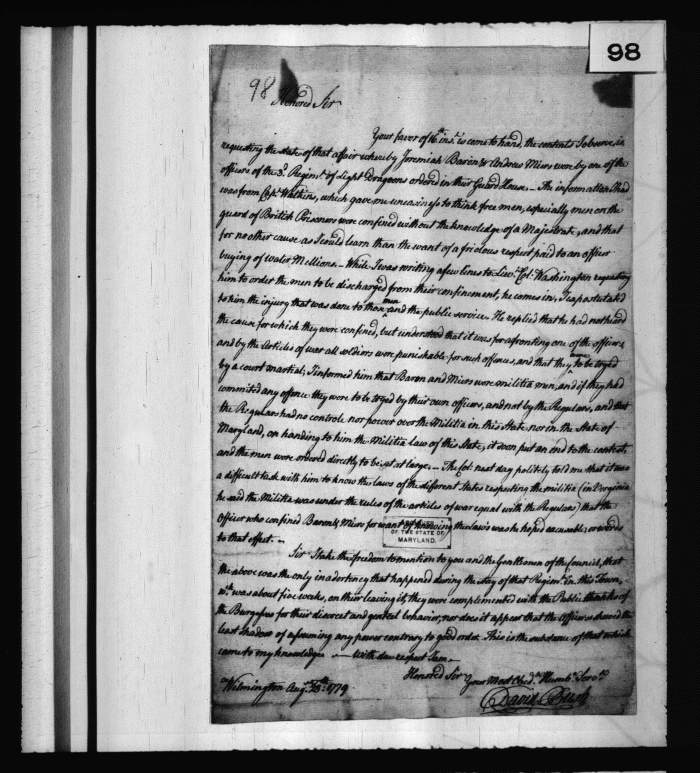 98
98
Honored Sir
Your favor of 16th ins.t is come to hand, the contents I observe, is
requesting the state of that affair whereby Jeremiah Baron & Andrew Miers were by one of the
officers of the 3.d Regim.t of Light Dragoons ordered in their Guard House. – The information I had
was from Cap.t Watkins, which gave me uneasiness to think free men, especially men on the
guard of British Prisoners were confined without the knowledge of a Majestrate, and that
for no other cause as I could learn than the want of a frivolous respect paid to an officer
buying of water Mellions. – While I was writing a few lines to Lieu.t Col. Washington requesting
him to order the men to be discharged from their confinement, he comes in. I expostulated
to him the injury that was done to those men and the public service. He replied that he had not heard
the cause for which they were confined, but understood that it was for afronting one of the officers,
and by the Articles of war all soldiers were punishable for such offences, and that they were to be tryed
by a court martial; I informed him that Baron and Miers were militia men, and if they had
commited any offence they were to be tryed by their own officers, and not by the Regulars, and that
the Regulars had no controle nor power over the Militia in this State nor in the State of
Maryland, on handing to him the Militia law of this State, it soon put an end to the contest,
and the men were ordered directly to be set at large. – The Col. next day politely told me that it was
a difficult task with him to know the laws of the different states respecting the militia (in Virginia
he said the Militia was under the rules of the articles of war equal with the Regulars) that the
Officer who confined Baron & Miers for want of knowing the laws was he hoped excusable; or words
to that effect. –
OF THE STATE OF
MARYLAND.
Sir I take the freedom to mention to you and the Gentlemen of the Council, that
the above was the only inadvertency that happened during the stay of that Regim.t in this Town,
w.ch was about five weeks, on their leaving it, they were complemented with the Public thanks of
the Burgesses for their discreet and genteel behavior, nor does it appear that the Officer as shewed the
least shadow of assuming any power contrary to good order. This is the substance of that which
came to my knowledge – With due respect I am –
Honored Sir Your Most Obed.t Humb.e Serv.t
Wilmington Aug.t 28th 1779
David Bush